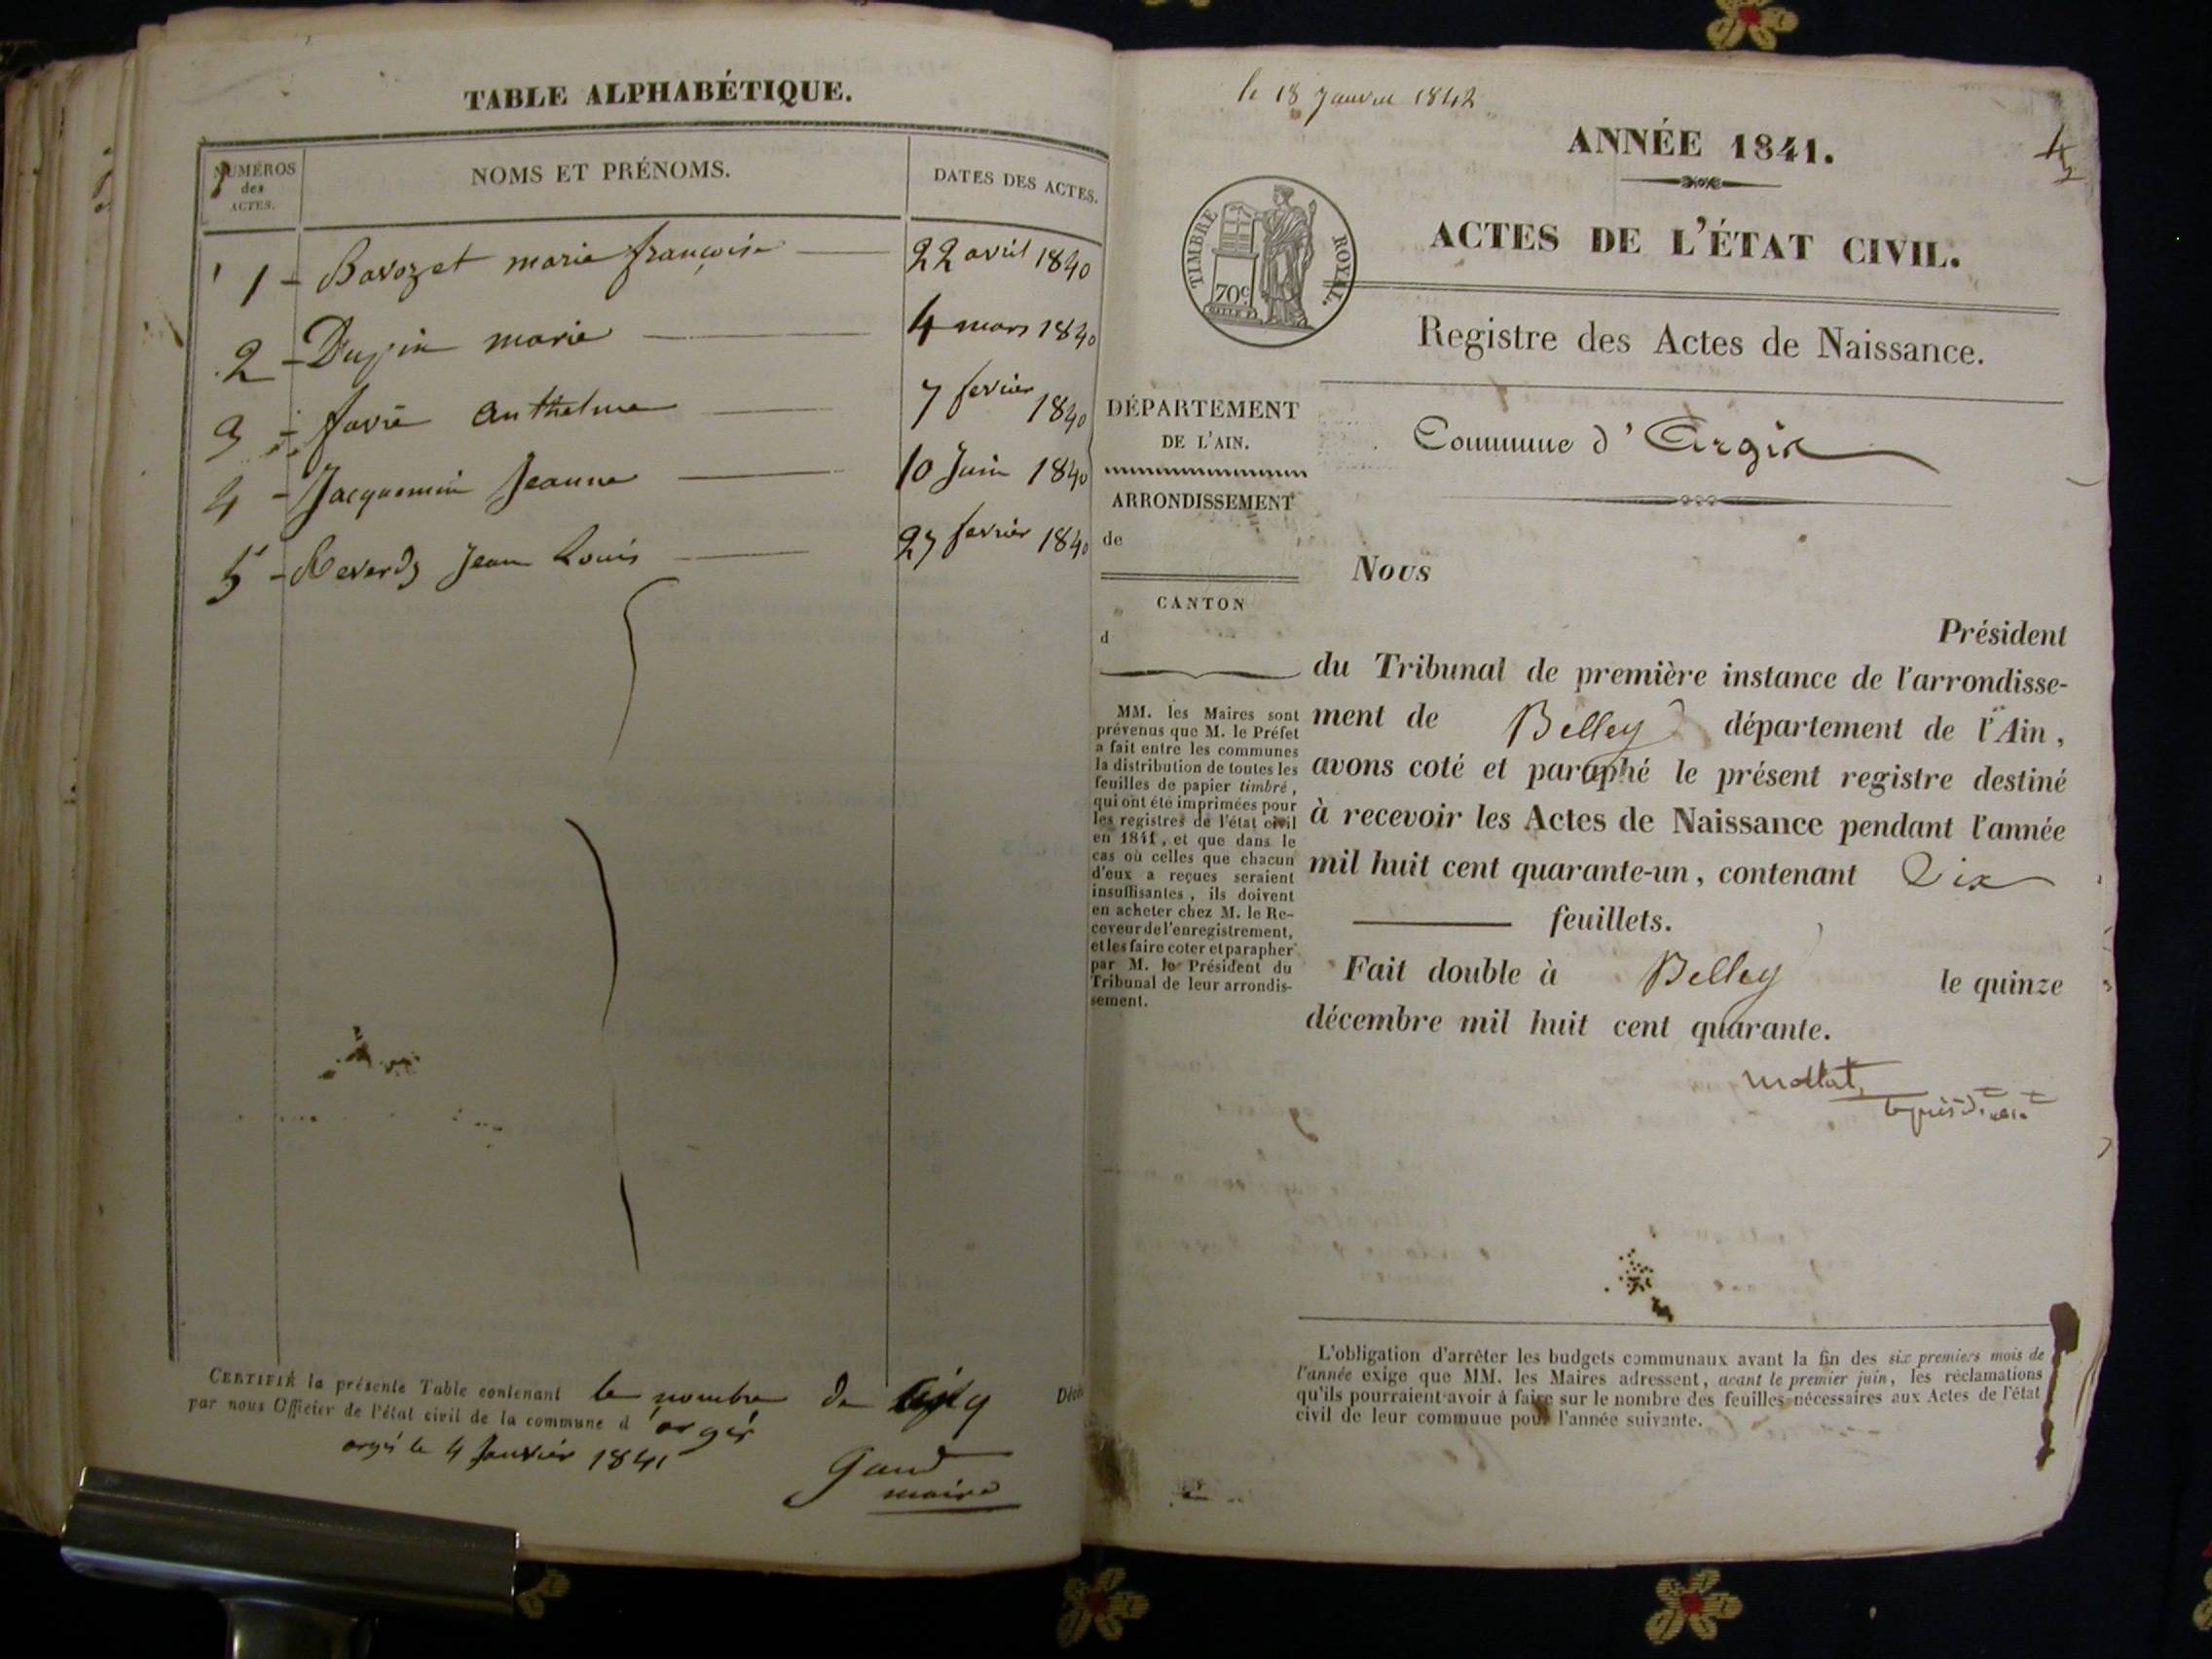 TABLE ALPHABÉTIQUE.
NUMÉROS
des
ACTES.
NOMS ET PRÉNOMS.
DATES DES ACTES.
1 - Bavozet marie françoise 22 avril 1840
2 - Dupin marie 4 mars 1840
3 - favre Anthelme 7 fevrier 1840
4 - Jacquemin Jeanne 10 Juin 1840
5 - Reverdy Jean Louis 27 fevrier 1840
CERTIFIÉ la présente Table contenant le nombre de cinq Décès
par nous Officier de l'état civil de la commune d'argis
argis le 4 Janvier 1841
Gaud
maire
le 18 Janvier 1842
ANNÉE 1841.
TIMBRE ROYAL.
70c
ACTES DE L'ÉTAT CIVIL.
Registre des Actes de Naissance.
Commune d'Argis
DÉPARTEMENT
DE L'AIN.
ARRONDISSEMENT
de
CANTON
d
MM. les Maires sont
prévenus que M. le Préfet
a fait entre les communes
la distribution de toutes les
feuilles de papier timbré,
qui ont été imprimées pour
les registres de l'état civil
en 1841, et que dans le
cas où celles que chacun
d'eux a reçues seraient
insuffisantes, ils doivent
en acheter chez M. le Re-
ceveur de l'enregistrement,
et les faire coter et parapher
par M. le Président du
Tribunal de leur arrondis-
sement.
Nous
Président
du Tribunal de première instance de l'arrondisse-
ment de Belley département de l'Ain,
avons coté et paraphé le présent registre destiné
à recevoir les Actes de Naissance pendant l'année
mil huit cent quarante-un, contenant Dix
feuillets.
Fait double à Belley le quinze
décembre mil huit cent quarante.
Mollat,
L'obligation d'arrêter les budgets communaux avant la fin des six premiers mois de
l'année exige que MM. les Maires adressent, avant le premier juin, les réclamations
qu'ils pourraient avoir à faire sur le nombre des feuilles nécessaires aux Actes de l'état
civil de leur commune pour l'année suivante.